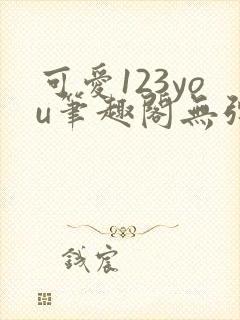 可爱123yo
u笔趣閣無弹
钱宸